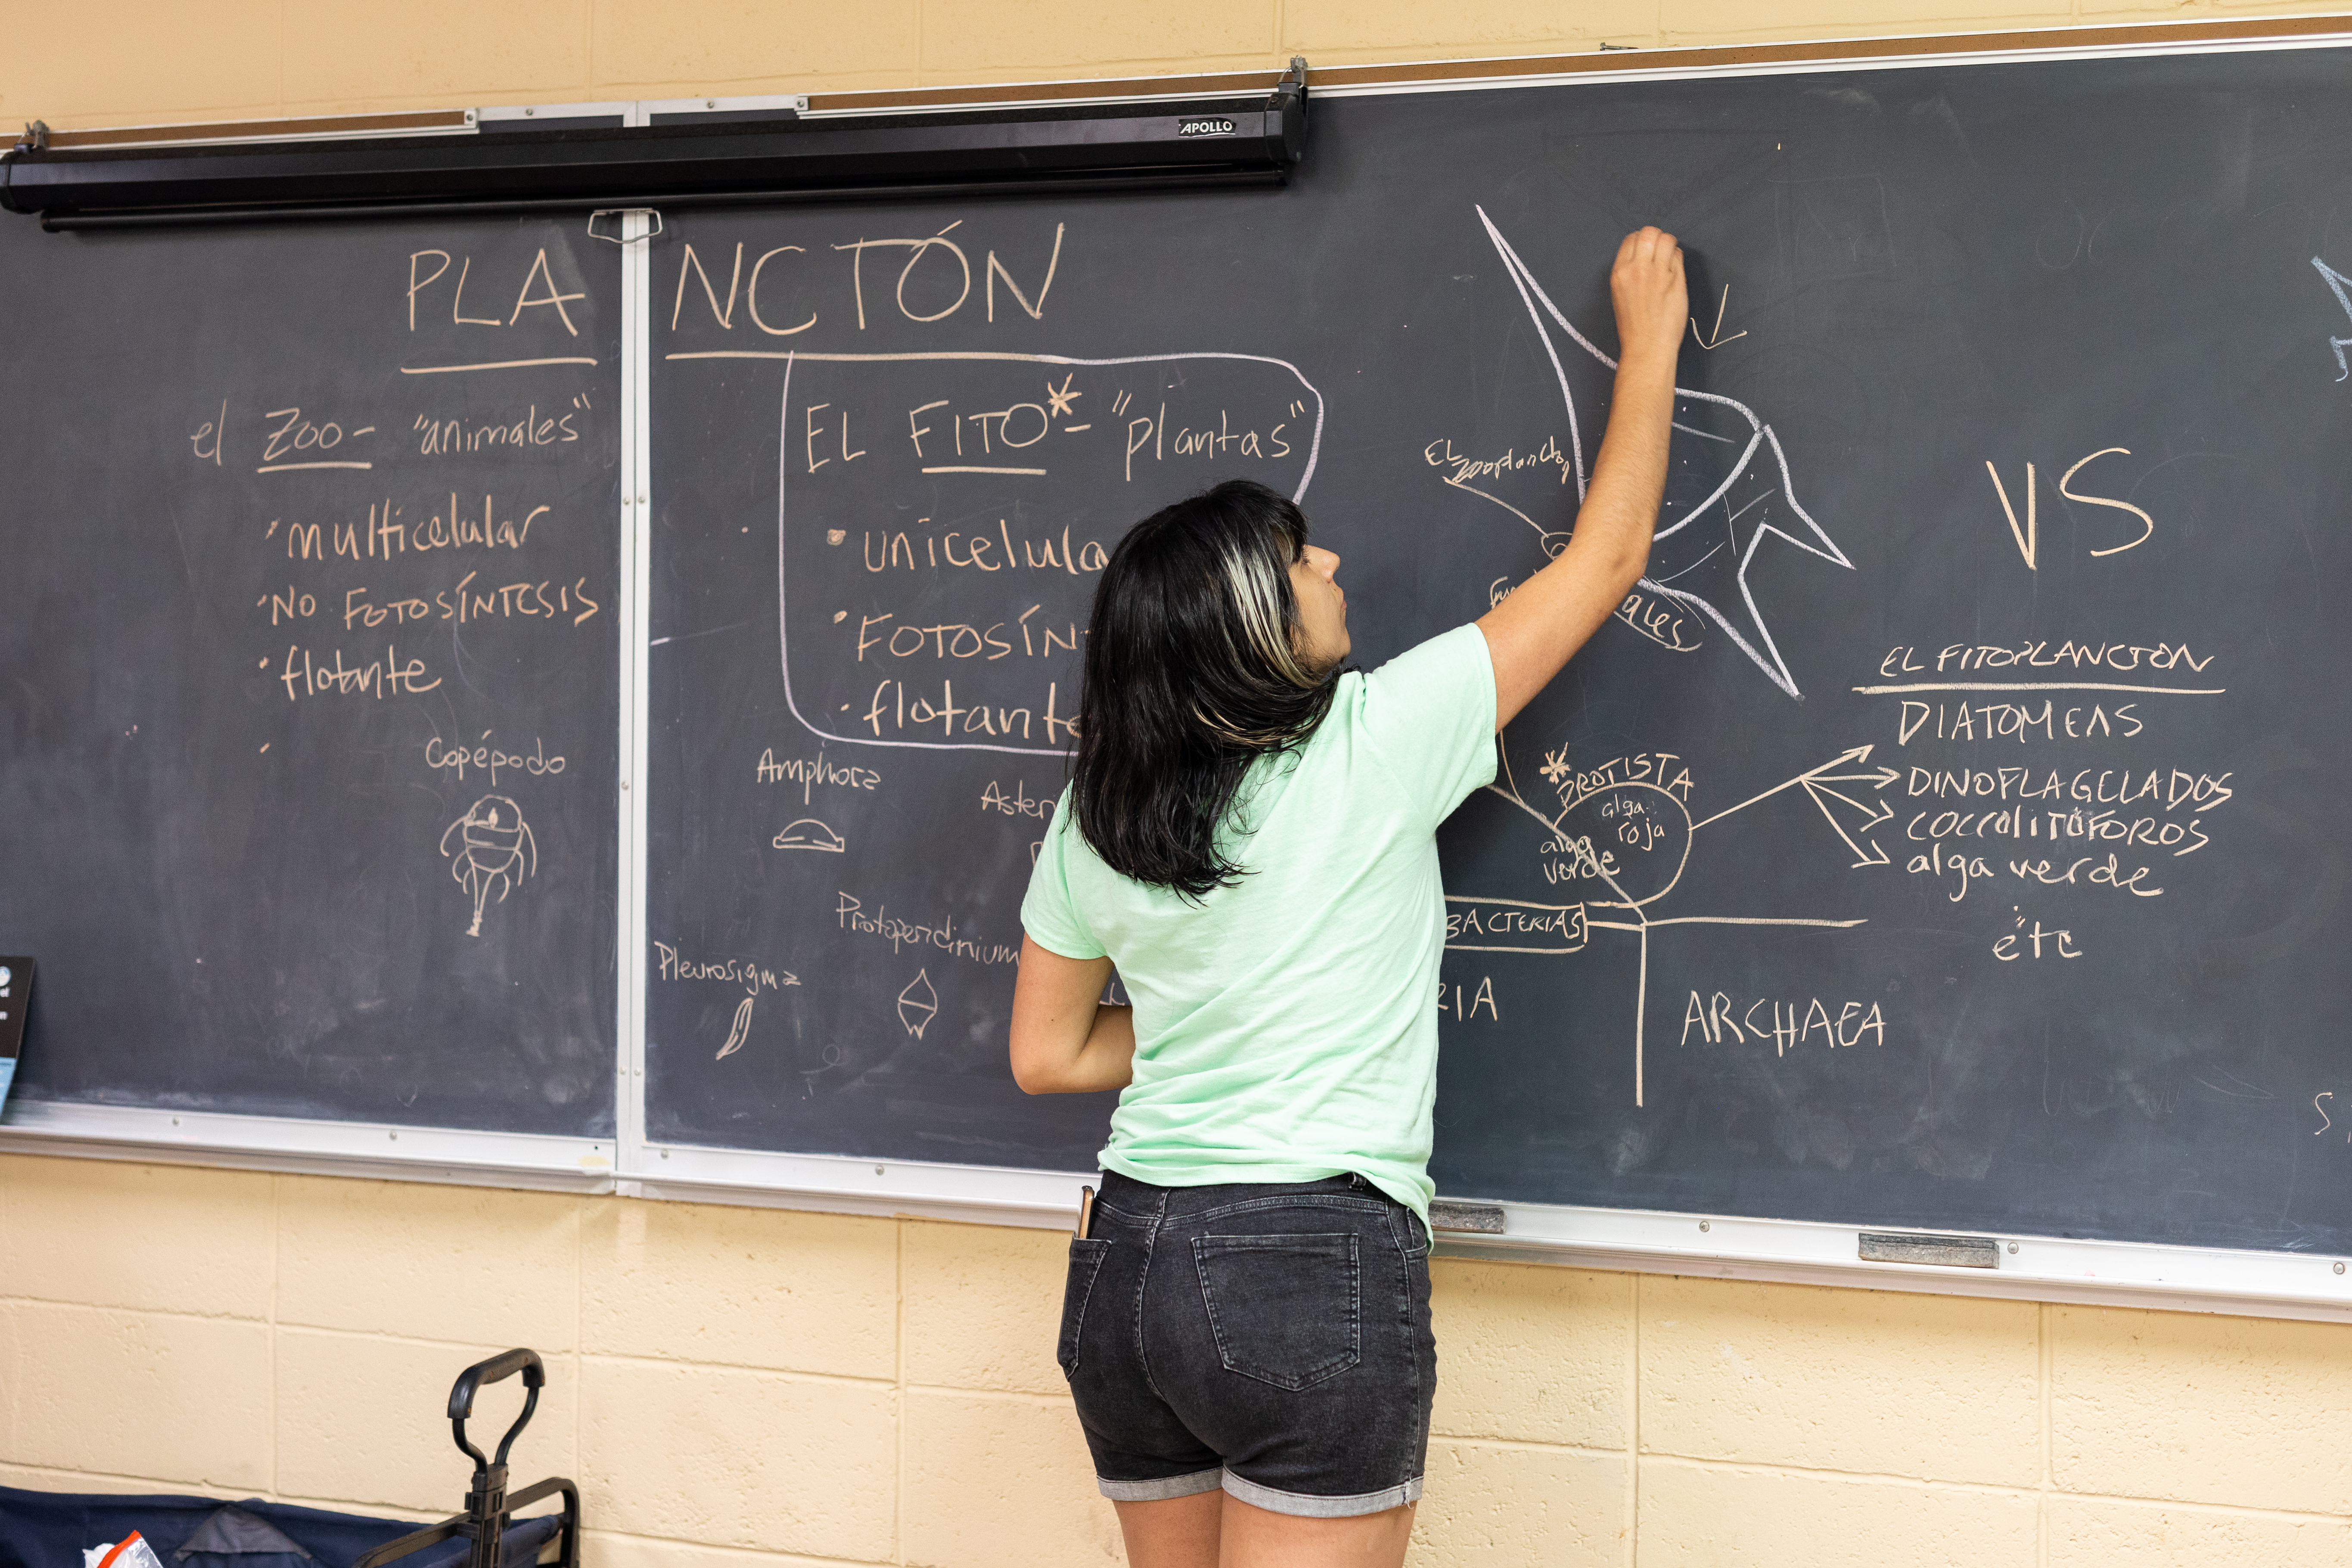 APOLLO
PLANCTÓN
el Zoo- "animales"
• multicelular
• NO FOTOSÍNTESIS
• flotante
Copépodo
EL FITO*- "plantas"
• unicelula
• FOTOSÍN
• flotante
Amphora
Aster
Protoperidinium
Pleurosigma
EL
zooplancton
ales
* PROTISTA
alga
roja
alga
verde
BACTERIAS
RIA
ARCHAEA
VS
EL FITOPLANCTON
DIATOMEAS
DINOFLAGELADOS
COCCOLITÓFOROS
alga verde
etc